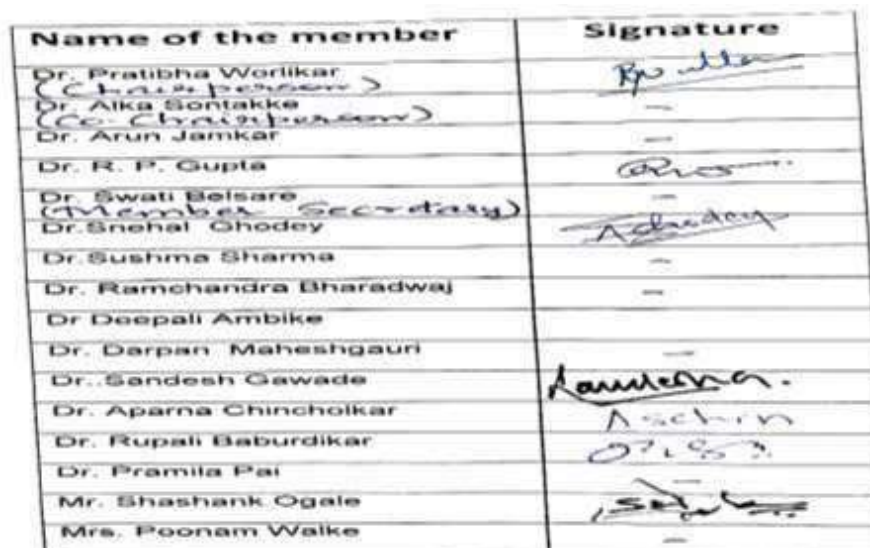 Name of the member Signature
Dr. Pratibha Worlikar
(Chairperson)
Dr. Alka Sontakke
(Co-Chairperson)
Dr. Arun Jamkar
Dr. R. P. Gupta
Dr. Swati Belsare
(Member Secretary)
Dr.Snehal Ghodey
Dr.Sushma Sharma
Dr. Ramchandra Bharadwaj
Dr Deepali Ambike
Dr. Darpan Maheshgauri
Dr..Sandesh Gawade
Dr. Aparna Chincholkar
Dr. Rupali Baburdikar
Dr. Pramila Pai
Mr. Shashank Ogale
Mrs. Poonam Walke